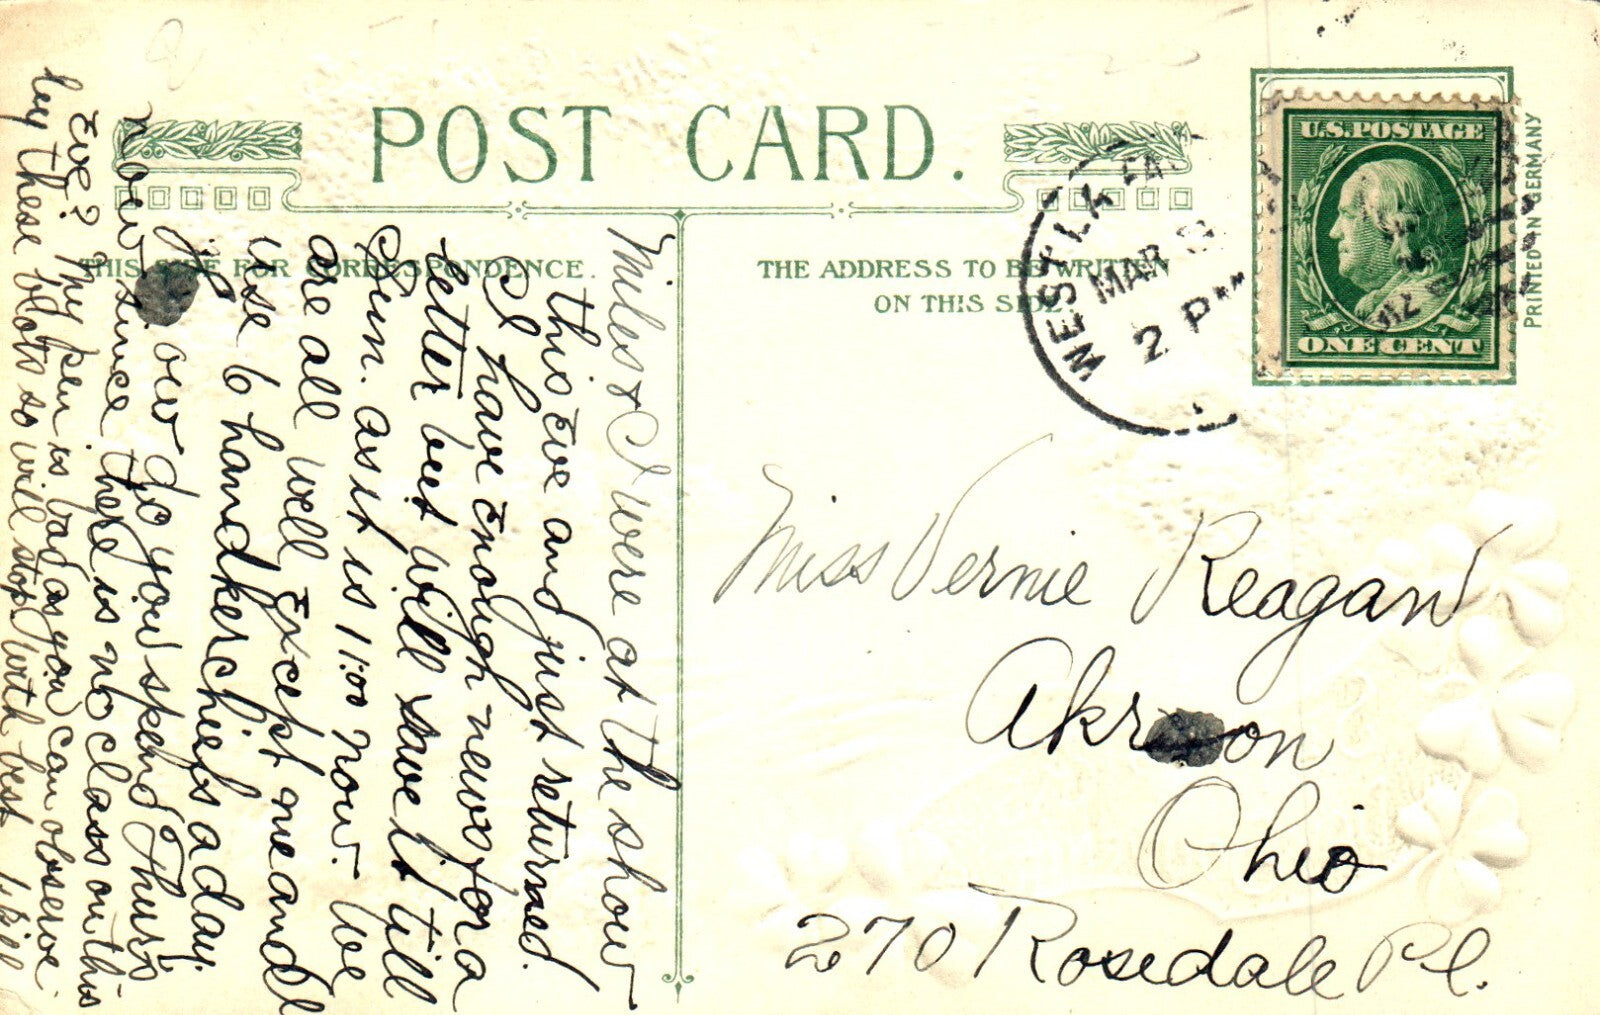 POST CARD.
THIS SIDE FOR CORRESPONDENCE.
THE ADDRESS TO BE WRITTEN
ON THIS SIDE
U.S. POSTAGE
ONE CENT
PRINTED IN GERMANY
WESTLA
MAR
2 PM
Miss Vernie Reagan
Akron
Ohio
270 Rosedale Pl.
Miles & I were at the show
this Eve and just returned.
I have Enough news for a
letter but will save it till
Sun. as it is 11:00 now. We
are all well Except me and I
use 6 handkerchiefs a day.
How do you spend Thurs
now since there is no class on this
Eve? My pen is bad as you can observe
by these blots so will stop. With best